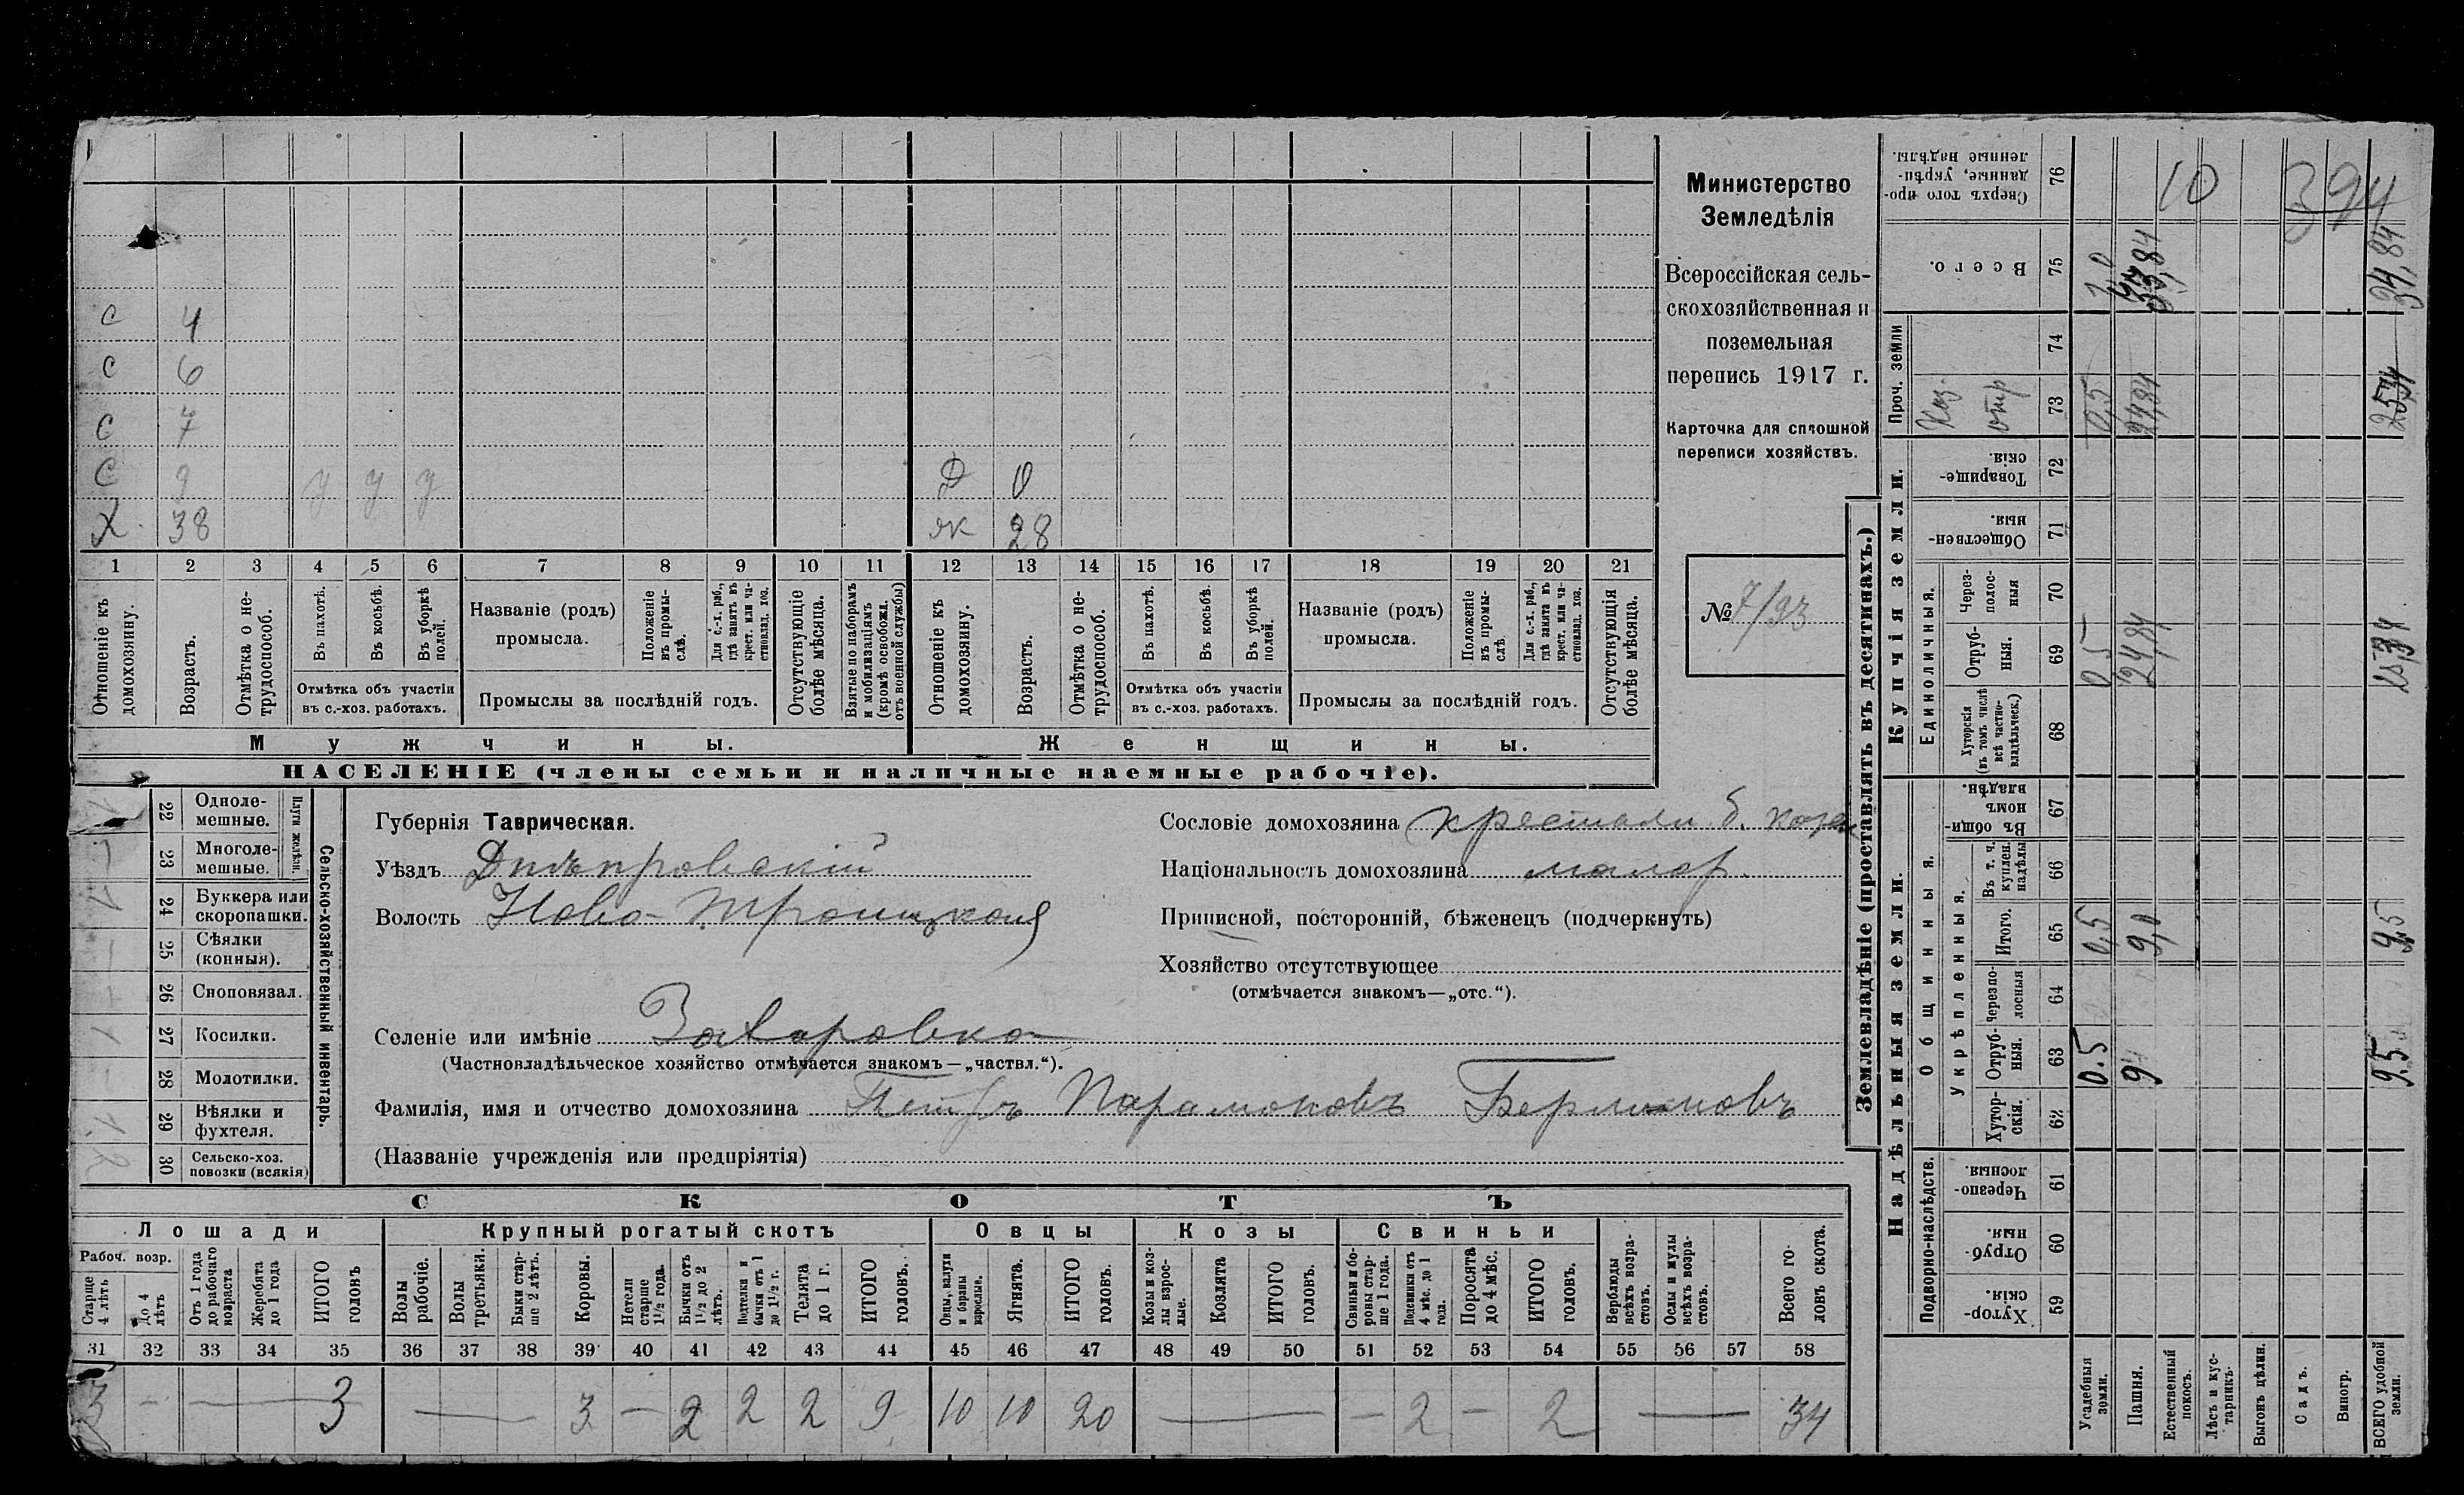 С 4
С 6
С 7
С 9 у у у Д 0
Х 38 як 28
1 2 3 4 5 6 7 8 9 10 11 12 13 14 15 16 17 18 19 20 21
Отношеніе къ домохозяину.
Возрастъ.
Отмѣтка о не-трудоспособ.
Въ пахотѣ.
Въ косьбѣ.
Въ уборкѣ полей.
Отмѣтка объ участіи
въ с.-хоз. работахъ.
Названіе (родъ)
промысла.
Положеніе въ промы-слѣ.
Для с.-х. раб., гдѣ занятъ въ крест. или ча-стновлад. хоз.
Промыслы за послѣдній годъ.
Отсутствующіе болѣе мѣсяца.
Взятые по наборамъ и мобилизаціямъ (кромѣ освобожд. отъ военной службы)
Отношеніе къ домохозяину.
Возрастъ.
Отмѣтка о не-трудоспособ.
Въ пахотѣ.
Въ косьбѣ.
Въ уборкѣ полей.
Отмѣтка объ участіи
въ с.-хоз. работахъ.
Названіе (родъ)
промысла.
Положеніе въ промы-слѣ.
Для с.-х. раб., гдѣ занята въ крест. или ча-стновлад. хоз.
Промыслы за послѣдній годъ.
Отсутствующія болѣе мѣсяца.
Мужчины.
Женщины.
НАСЕЛЕНІЕ (члены семьи и наличные наемные рабочіе).
Министерство
Земледѣлія
Всероссійская сель-
скохозяйственная и
поземельная
перепись 1917 г.
Карточка для сплошной
переписи хозяйствъ.
№ 7/93
Сельско-хозяйственный инвентарь.
Плуги желѣзн.
22 Одноле-мешные.
23 Многоле-мешные.
24 Буккера или скоропашки.
25 Сѣялки (конныя).
26 Сноповязал.
27 Косилки.
28 Молотилки.
29 Вѣялки и фухтеля.
30 Сельско-хоз. повозки (всякія)
Губернія Таврическая.
Уѣздъ Днѣпровскій
Волость Ново-Троицкая
Селеніе или имѣніе Захаровка
(Частновладѣльческое хозяйство отмѣчается знакомъ—„частвл.“).
Фамилія, имя и отчество домохозяина Петръ Парамоновъ
(Названіе учрежденія или предпріятія)
Сословіе домохозяина
Національность домохозяина малор.
Приписной, посторонній, бѣженецъ (подчеркнуть)
Хозяйство отсутствующее
(отмѣчается знакомъ—„отс.“).
СКОТЪ
Лошади Крупный рогатый скотъ Овцы Козы Свиньи
Рабоч. возр.
Старше 4 лѣтъ
До 4 лѣтъ
Отъ 1 года до рабочаго возраста
Жеребята до 1 года
ИТОГО головъ
Волы рабочіе.
Волы третьяки.
Быки стар-ше 2 лѣтъ.
Коровы.
Нетели старше 1½ года.
Бычки отъ 1½ до 2 лѣтъ.
Подтелки и бычки отъ 1 до 1½ г.
Телята до 1 г.
ИТОГО головъ.
Овцы, валухи и бараны взрослые.
Ягнята.
ИТОГО головъ.
Козы и коз-лы взрос-лые.
Козлята
ИТОГО головъ.
Свиньи и бо-ровы стар-ше 1 года.
Подсвинки отъ 4 мѣс. до 1 года.
Поросята до 4 мѣс.
ИТОГО головъ.
Верблюды всѣхъ возра-стовъ.
Ослы и мулы всѣхъ возра-стовъ.
Всего го-ловъ скота.
31 32 33 34 35 36 37 38 39 40 41 42 43 44 45 46 47 48 49 50 51 52 53 54 55 56 57 58
3 — — — 3 — 3 — 2 2 2 9 10 10 20 — — 2 — 2 — 34
Землевладѣніе (проставлять въ десятинахъ.)
Купчія земли.
Надѣльныя земли.
Проч. земли
Единоличныя.
Общинныя.
Укрѣпленныя.
Подворно-наслѣдств.
Сверхъ того про-данные, укрѣп-ленные надѣлы. 76 10 394
Всего. 75 34,84
74
отр 73 0,5 24,84
Товарище-скія. 72
Обществен-ныя. 71
Через-полос-ныя 70
Отруб-ныя. 69 0,5 24,84
Хуторскія (въ томъ числѣ всѣ частно-владѣльческ.) 68
Въ общи-номъ владѣн. 67
Въ т. ч. куплен. надѣлы 66
Итого. 65 0,5 9,0 9,5
Черезпо-лосныя 64
Отруб-ныя. 63 0.5 9,5
Хутор-скія. 62
Черезпо-лосныя 61
Отруб-ныя 60
Хутор-скія. 59
Усадебныя земли.
Пашня.
Естественный покосъ.
Лѣсъ и кус-тарникъ.
Выгонъ цѣлин.
Садъ.
Виногр.
ВСЕГО удобной земли.